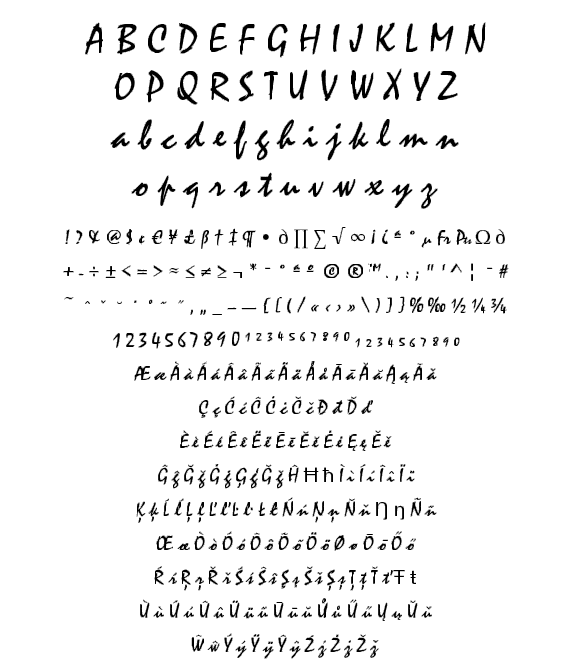 A B C D E F G H I J K L M N
O P Q R S T U V W X Y Z
a b c d e f g h i j k l m n
o p q r s t u v w x y z
! ? & @ $ ¢ € ¥ £ β † ‡ ¶ • ∂ ∏ ∑ √ ∞ ¡ ¿ ª º µ Fr Pts Ω ∂
+ - ÷ ± < = > ≈ ≤ ≠ ≥ ¬ * - ° ª º © ® ™ . , : ; " ' ^ ¦ ¯ #
˜ ˆ ˇ ˘ ˙ ˚ ~ ˝ ‚ „ _ – — { [ ( / « ‹ › » \ ) ] } % ‰ ½ ¼ ¾
1 2 3 4 5 6 7 8 9 0 1 2 3 4 5 6 7 8 9 0 1 2 3 4 5 6 7 8 9 0
Æ æ À à Á á Â â Ã ã Ä ä Å å Ā ā Ă ă Ą ą Ǎ ǎ
Ç ç Ć ć Ĉ ĉ Ċ ċ Č č Đ đ Ď ď
È è É é Ê ê Ë ë Ē ē Ĕ ĕ Ė ė Ę ę Ě ě
Ĝ ĝ Ğ ğ Ġ ġ Ģ ģ Ǧ ǧ Ĥ Ħ ħ Ì ì Í í Î î Ï ï
Ķ ķ Ĺ ĺ Ļ ļ Ľ ľ Ŀ ŀ Ł ł Ń ń Ņ ņ Ň ň Ŋ ŋ Ñ ñ
Œ œ Ò ò Ó ó Ô ô Õ õ Ö ö Ø ø Ō ō Ő ő
Ŕ ŕ Ŗ ŗ Ř ř Ś ś Ŝ ŝ Ş ş Š š Ș ș Ţ ţ Ť ť Ŧ ŧ
Ù ù Ú ú Û û Ü ü Ũ ũ Ū ū Ŭ ŭ Ů ů Ű ű Ų ų Ǔ ǔ
Ŵ ŵ Ý ý Ÿ ÿ Ŷ ŷ Ź ź Ż ż Ž ž